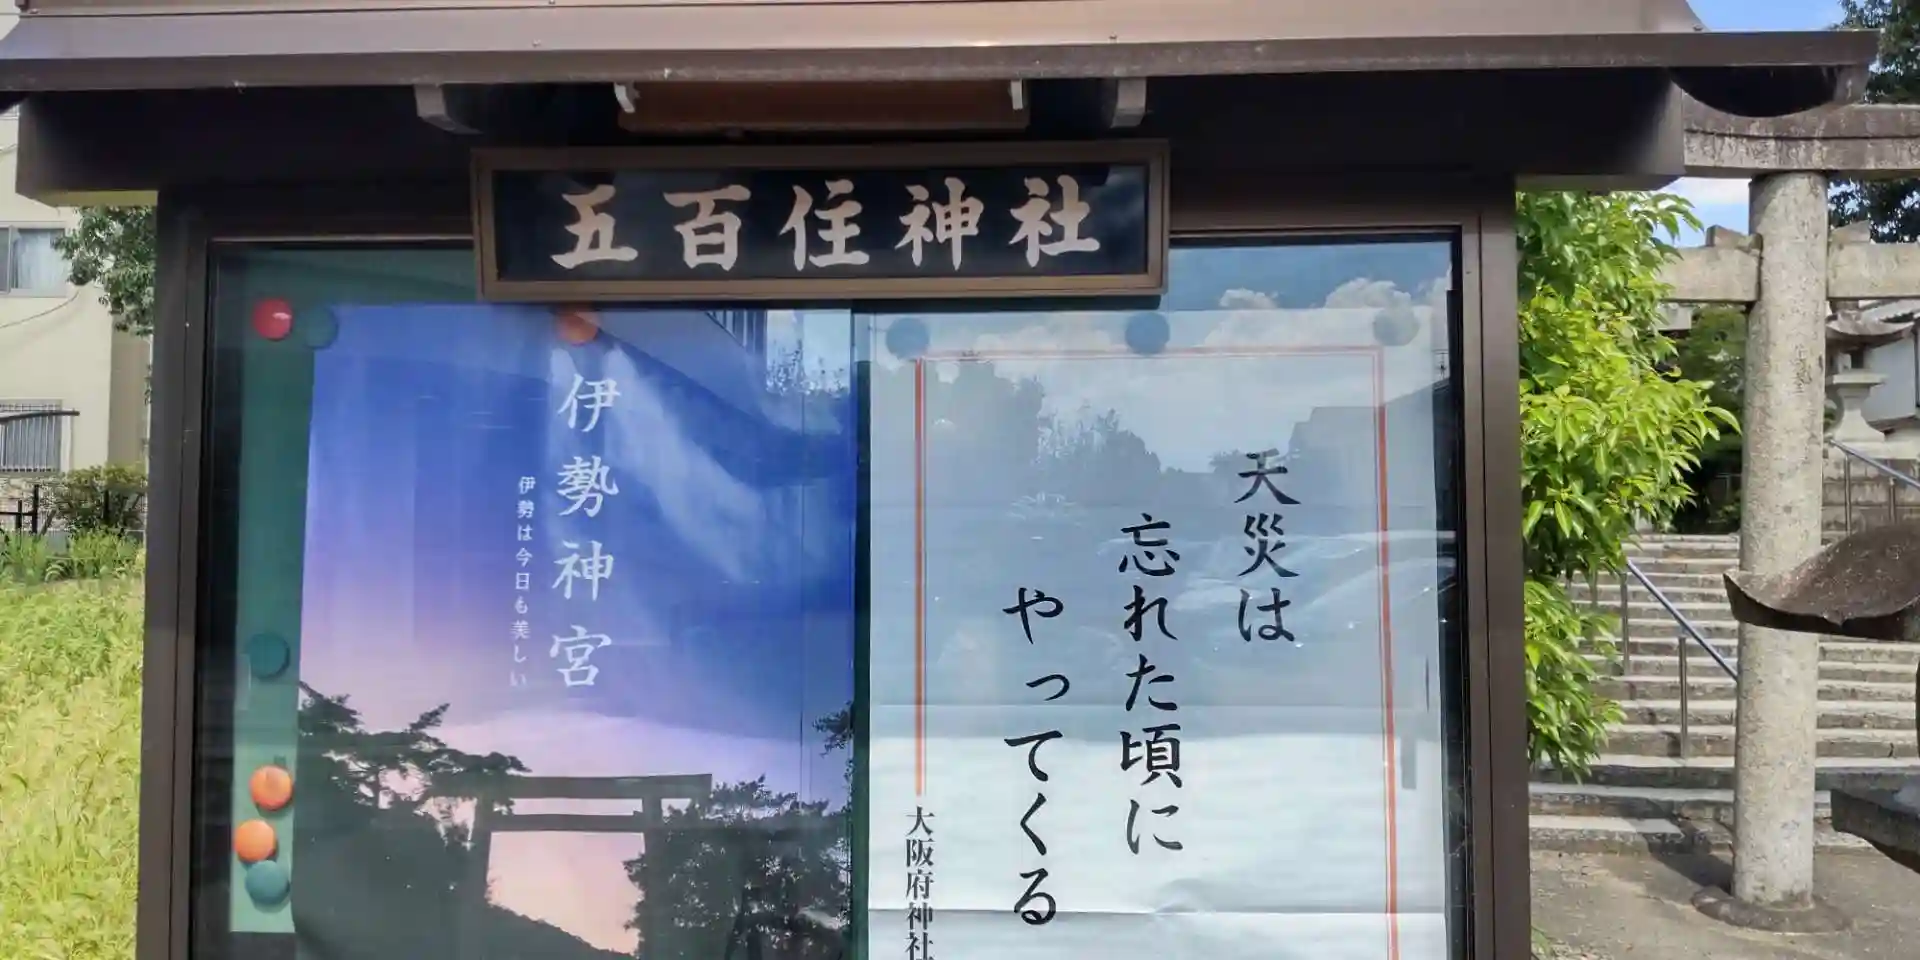 五百住神社
天災は
忘れた頃に
やってくる
大阪府神社
伊勢神宮
伊勢は今日も美しい